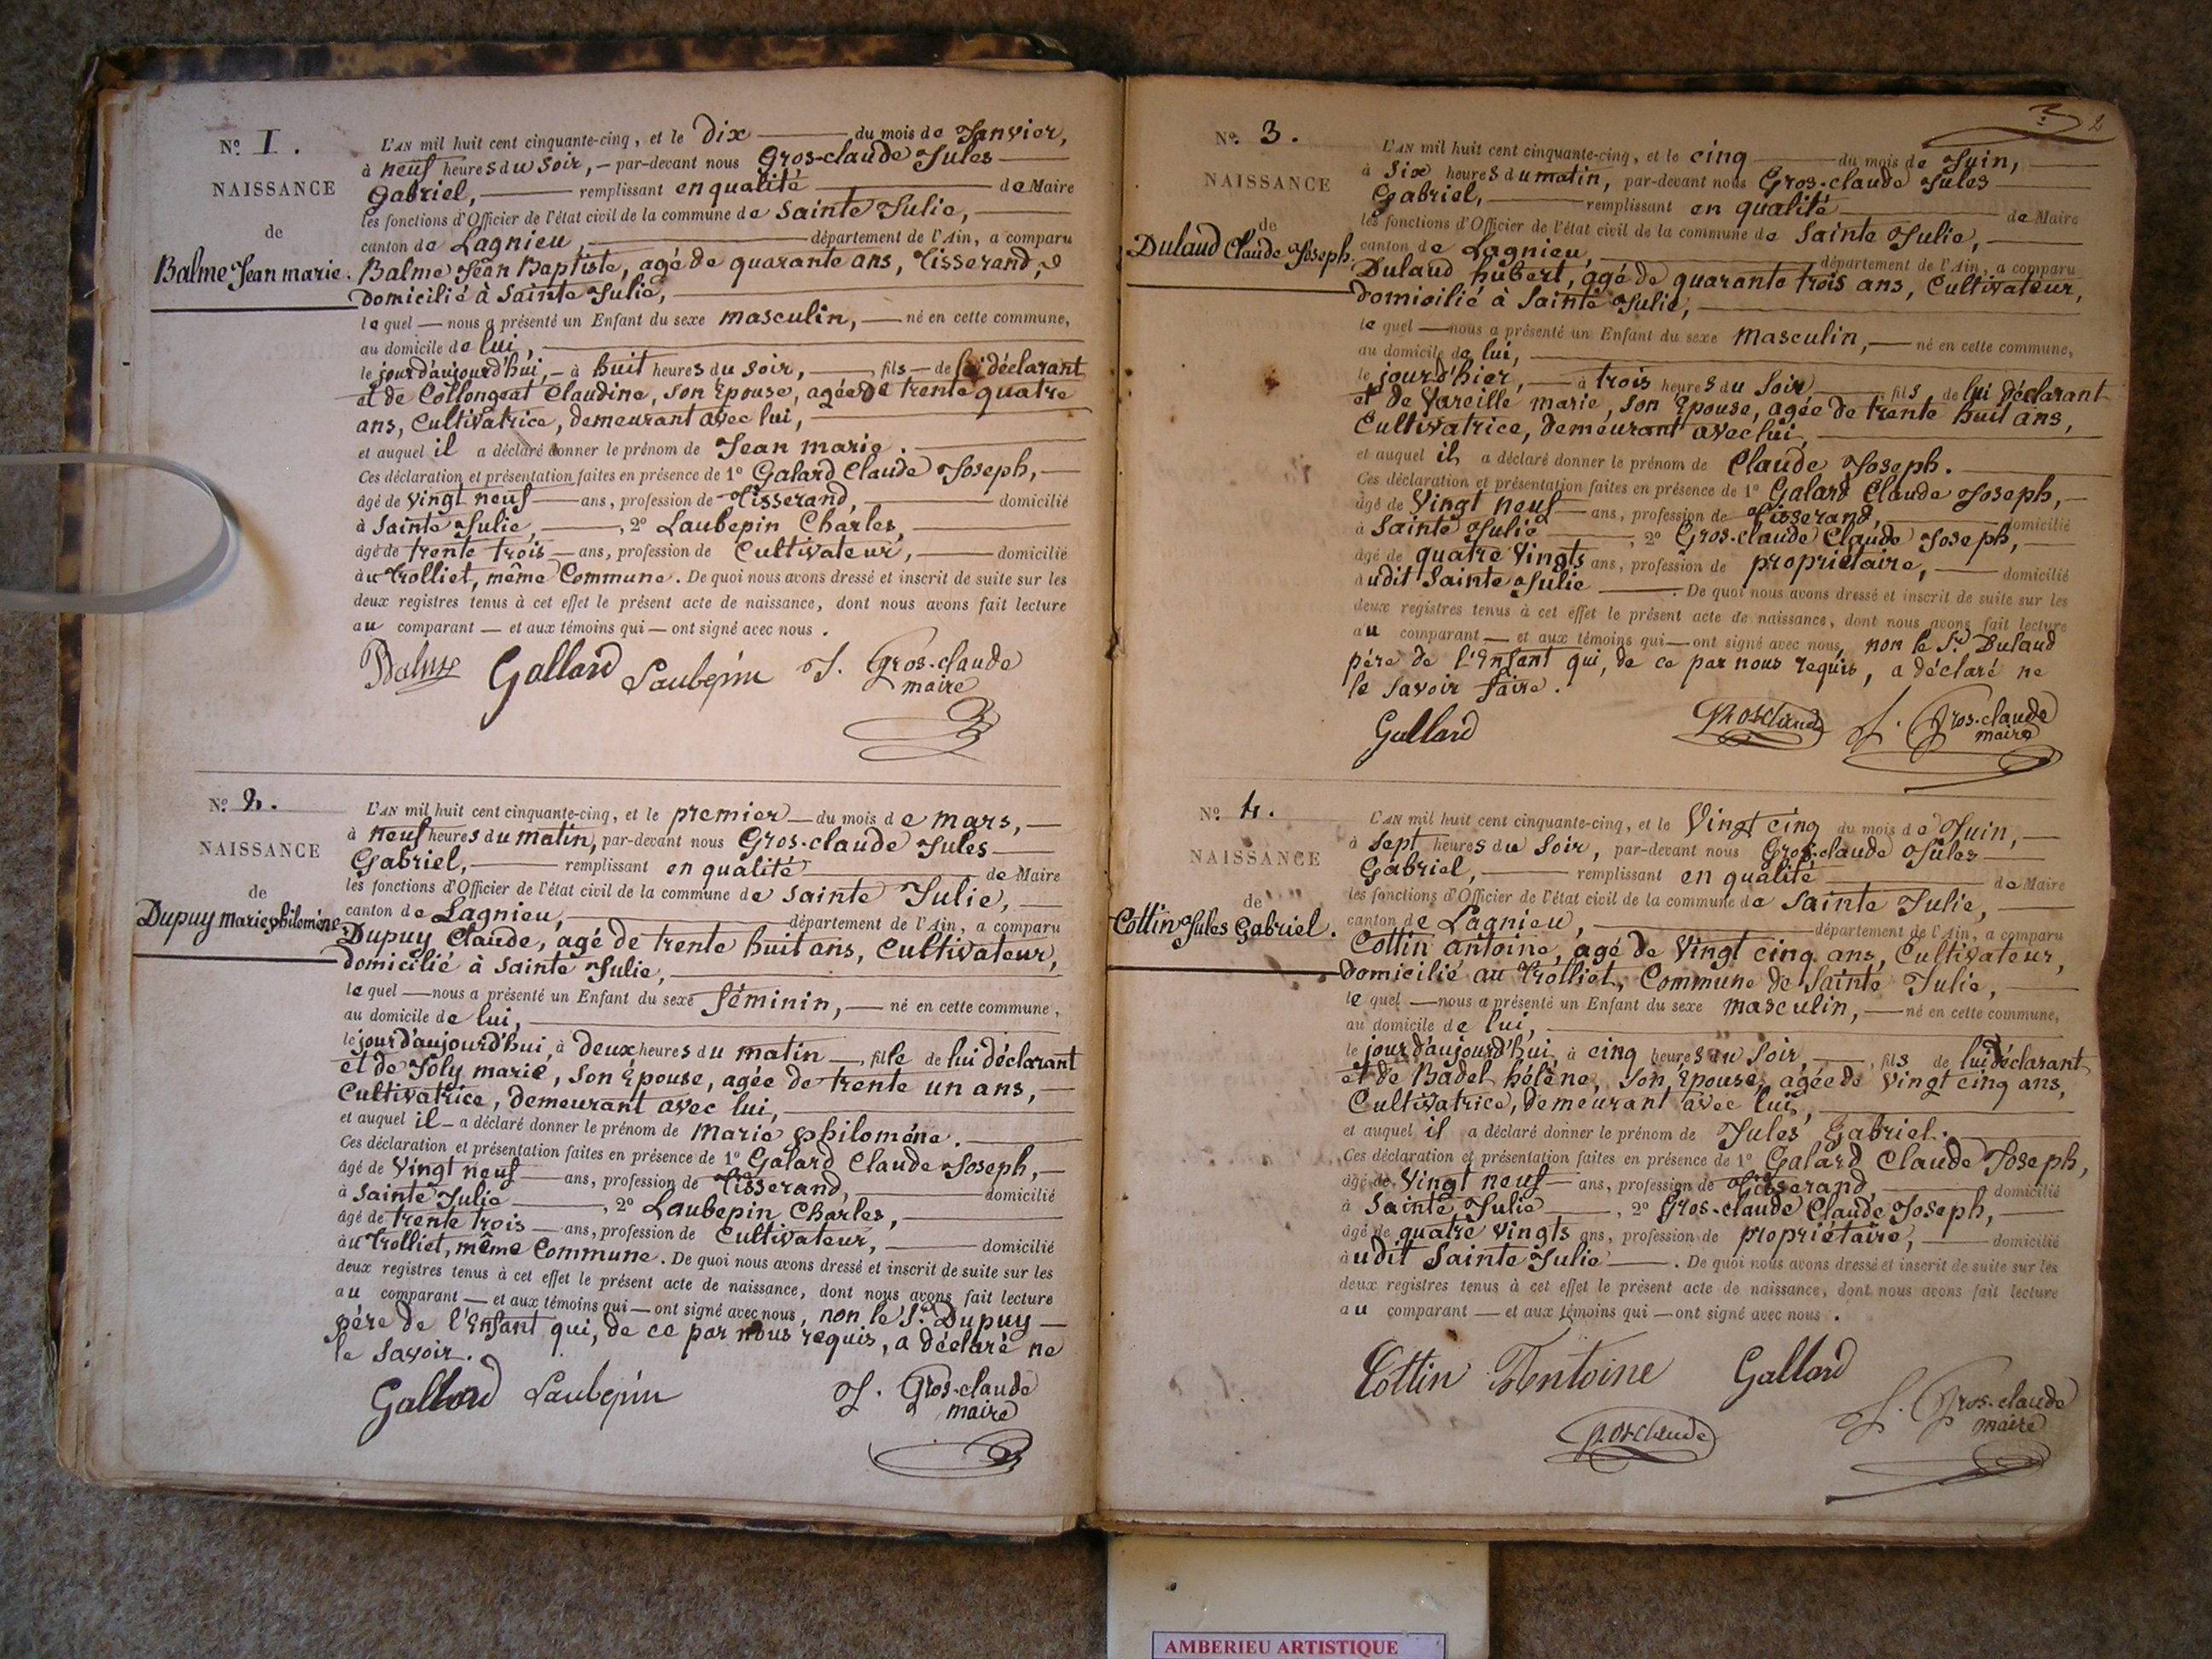 Nº 1.
NAISSANCE
de
Balme Jean marie.
L'AN mil huit cent cinquante-cinq, et le dix du mois de Janvier,
à neuf heures du soir, par-devant nous Gros-claude Jules
Gabriel, remplissant en qualité de Maire
les fonctions d'Officier de l'état civil de la commune de Sainte Julie,
canton de Lagnieu, département de l'Ain, a comparu
Balme Jean Baptiste, agé de quarante ans, Tisserand,
domicilié à Sainte Julie,
lequel nous a présenté un Enfant du sexe masculin, né en cette commune,
au domicile de lui,
le jour d'aujourd'hui, à huit heures du soir, fils de lui déclarant
et de Collongeat Claudine, son Epouse, agée de trente quatre
ans, Cultivatrice, demeurant avec lui,
et auquel il a déclaré donner le prénom de Jean marie.
Ces déclaration et présentation faites en présence de 1º Galard Claude Joseph,
âgé de vingt neuf ans, profession de Tisserand, domicilié
à Sainte Julie, 2º Laubepin Charles,
âgé de trente trois ans, profession de Cultivateur, domicilié
au Trolliet, même Commune. De quoi nous avons dressé et inscrit de suite sur les
deux registres tenus à cet effet le présent acte de naissance, dont nous avons fait lecture
au comparant et aux témoins qui ont signé avec nous.
Balme Gallard Laubepin J. Gros-claude
maire
Nº 2.
NAISSANCE
de
Dupuy marie philoméne.
L'AN mil huit cent cinquante-cinq, et le premier du mois de mars,
à neuf heures du matin, par-devant nous Gros-claude Jules
Gabriel, remplissant en qualité de Maire
les fonctions d'Officier de l'état civil de la commune de Sainte Julie,
canton de Lagnieu, département de l'Ain, a comparu
Dupuy Claude, agé de trente huit ans, Cultivateur,
domicilié à Sainte Julie,
lequel nous a présenté un Enfant du sexe féminin, né en cette commune,
au domicile de lui,
le jour d'aujourd'hui, à deux heures du matin, fille de lui déclarant
et de Joly marie, son Epouse, agée de trente un ans,
Cultivatrice, demeurant avec lui,
et auquel il a déclaré donner le prénom de marie philoméne.
Ces déclaration et présentation faites en présence de 1º Galard Claude Joseph,
âgé de vingt neuf ans, profession de Tisserand, domicilié
à Sainte Julie, 2º Laubepin Charles,
âgé de trente trois ans, profession de Cultivateur, domicilié
au Trolliet, même Commune. De quoi nous avons dressé et inscrit de suite sur les
deux registres tenus à cet effet le présent acte de naissance, dont nous avons fait lecture
au comparant et aux témoins qui ont signé avec nous, non le Sr. Dupuy
pére de l'Enfant qui, de ce par nous requis, a déclaré ne
le savoir.
Gallard Laubepin J. Gros-claude
maire
2
Nº 3.
NAISSANCE
de
Dulaud Claude Joseph.
L'AN mil huit cent cinquante-cinq, et le cinq du mois de Juin,
à six heures du matin, par-devant nous Gros-claude Jules
Gabriel, remplissant en qualité de Maire
les fonctions d'Officier de l'état civil de la commune de Sainte Julie,
canton de Lagnieu, département de l'Ain, a comparu
Dulaud hubert, agé de quarante trois ans, Cultivateur,
domicilié à Sainte Julie,
lequel nous a présenté un Enfant du sexe masculin, né en cette commune,
au domicile de lui,
le jour d'hier, à trois heures du soir, fils de lui déclarant
et de Vareille marie, son Epouse, agée de trente huit ans,
Cultivatrice, demeurant avec lui,
et auquel il a déclaré donner le prénom de Claude Joseph.
Ces déclaration et présentation faites en présence de 1º Galard Claude Joseph,
âgé de vingt neuf ans, profession de Tisserand, domicilié
à Sainte Julie, 2º Gros-claude Claude Joseph,
âgé de quatre vingts ans, profession de propriétaire, domicilié
audit Sainte Julie. De quoi nous avons dressé et inscrit de suite sur les
deux registres tenus à cet effet le présent acte de naissance, dont nous avons fait lecture
au comparant et aux témoins qui ont signé avec nous, non le Sr. Dulaud
pére de l'Enfant qui, de ce par nous requis, a déclaré ne
le savoir faire.
Gallard Grosclaude J. Gros-claude
maire
Nº 4.
NAISSANCE
de
Cottin Jules Gabriel.
L'AN mil huit cent cinquante-cinq, et le vingt cinq du mois de Juin,
à sept heures du soir, par-devant nous Gros-claude Jules
Gabriel, remplissant en qualité de Maire
les fonctions d'Officier de l'état civil de la commune de Sainte Julie,
canton de Lagnieu, département de l'Ain, a comparu
Cottin antoine, agé de vingt cinq ans, Cultivateur,
domicilié au Trolliet, Commune de Sainte Julie,
lequel nous a présenté un Enfant du sexe masculin, né en cette commune,
au domicile de lui,
le jour d'aujourd'hui, à cinq heures du soir, fils de lui déclarant
et de Badel héléne, son Epouse, agée de vingt cinq ans,
Cultivatrice, demeurant avec lui,
et auquel il a déclaré donner le prénom de Jules Gabriel.
Ces déclaration et présentation faites en présence de 1º Galard Claude Joseph,
âgé de vingt neuf ans, profession de Tisserand, domicilié
à Sainte Julie, 2º Gros-claude Claude Joseph,
âgé de quatre vingts ans, profession de propriétaire, domicilié
audit Sainte Julie. De quoi nous avons dressé et inscrit de suite sur les
deux registres tenus à cet effet le présent acte de naissance, dont nous avons fait lecture
au comparant et aux témoins qui ont signé avec nous.
Cottin Antoine Gallard
Grosclaude J. Gros-claude
maire
AMBERIEU ARTISTIQUE